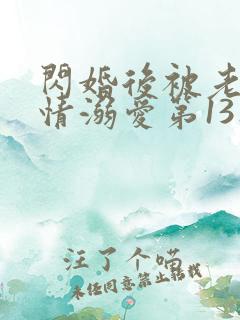 閃婚後被老
情溺愛第13
汪了个喵
未经同意禁止转载